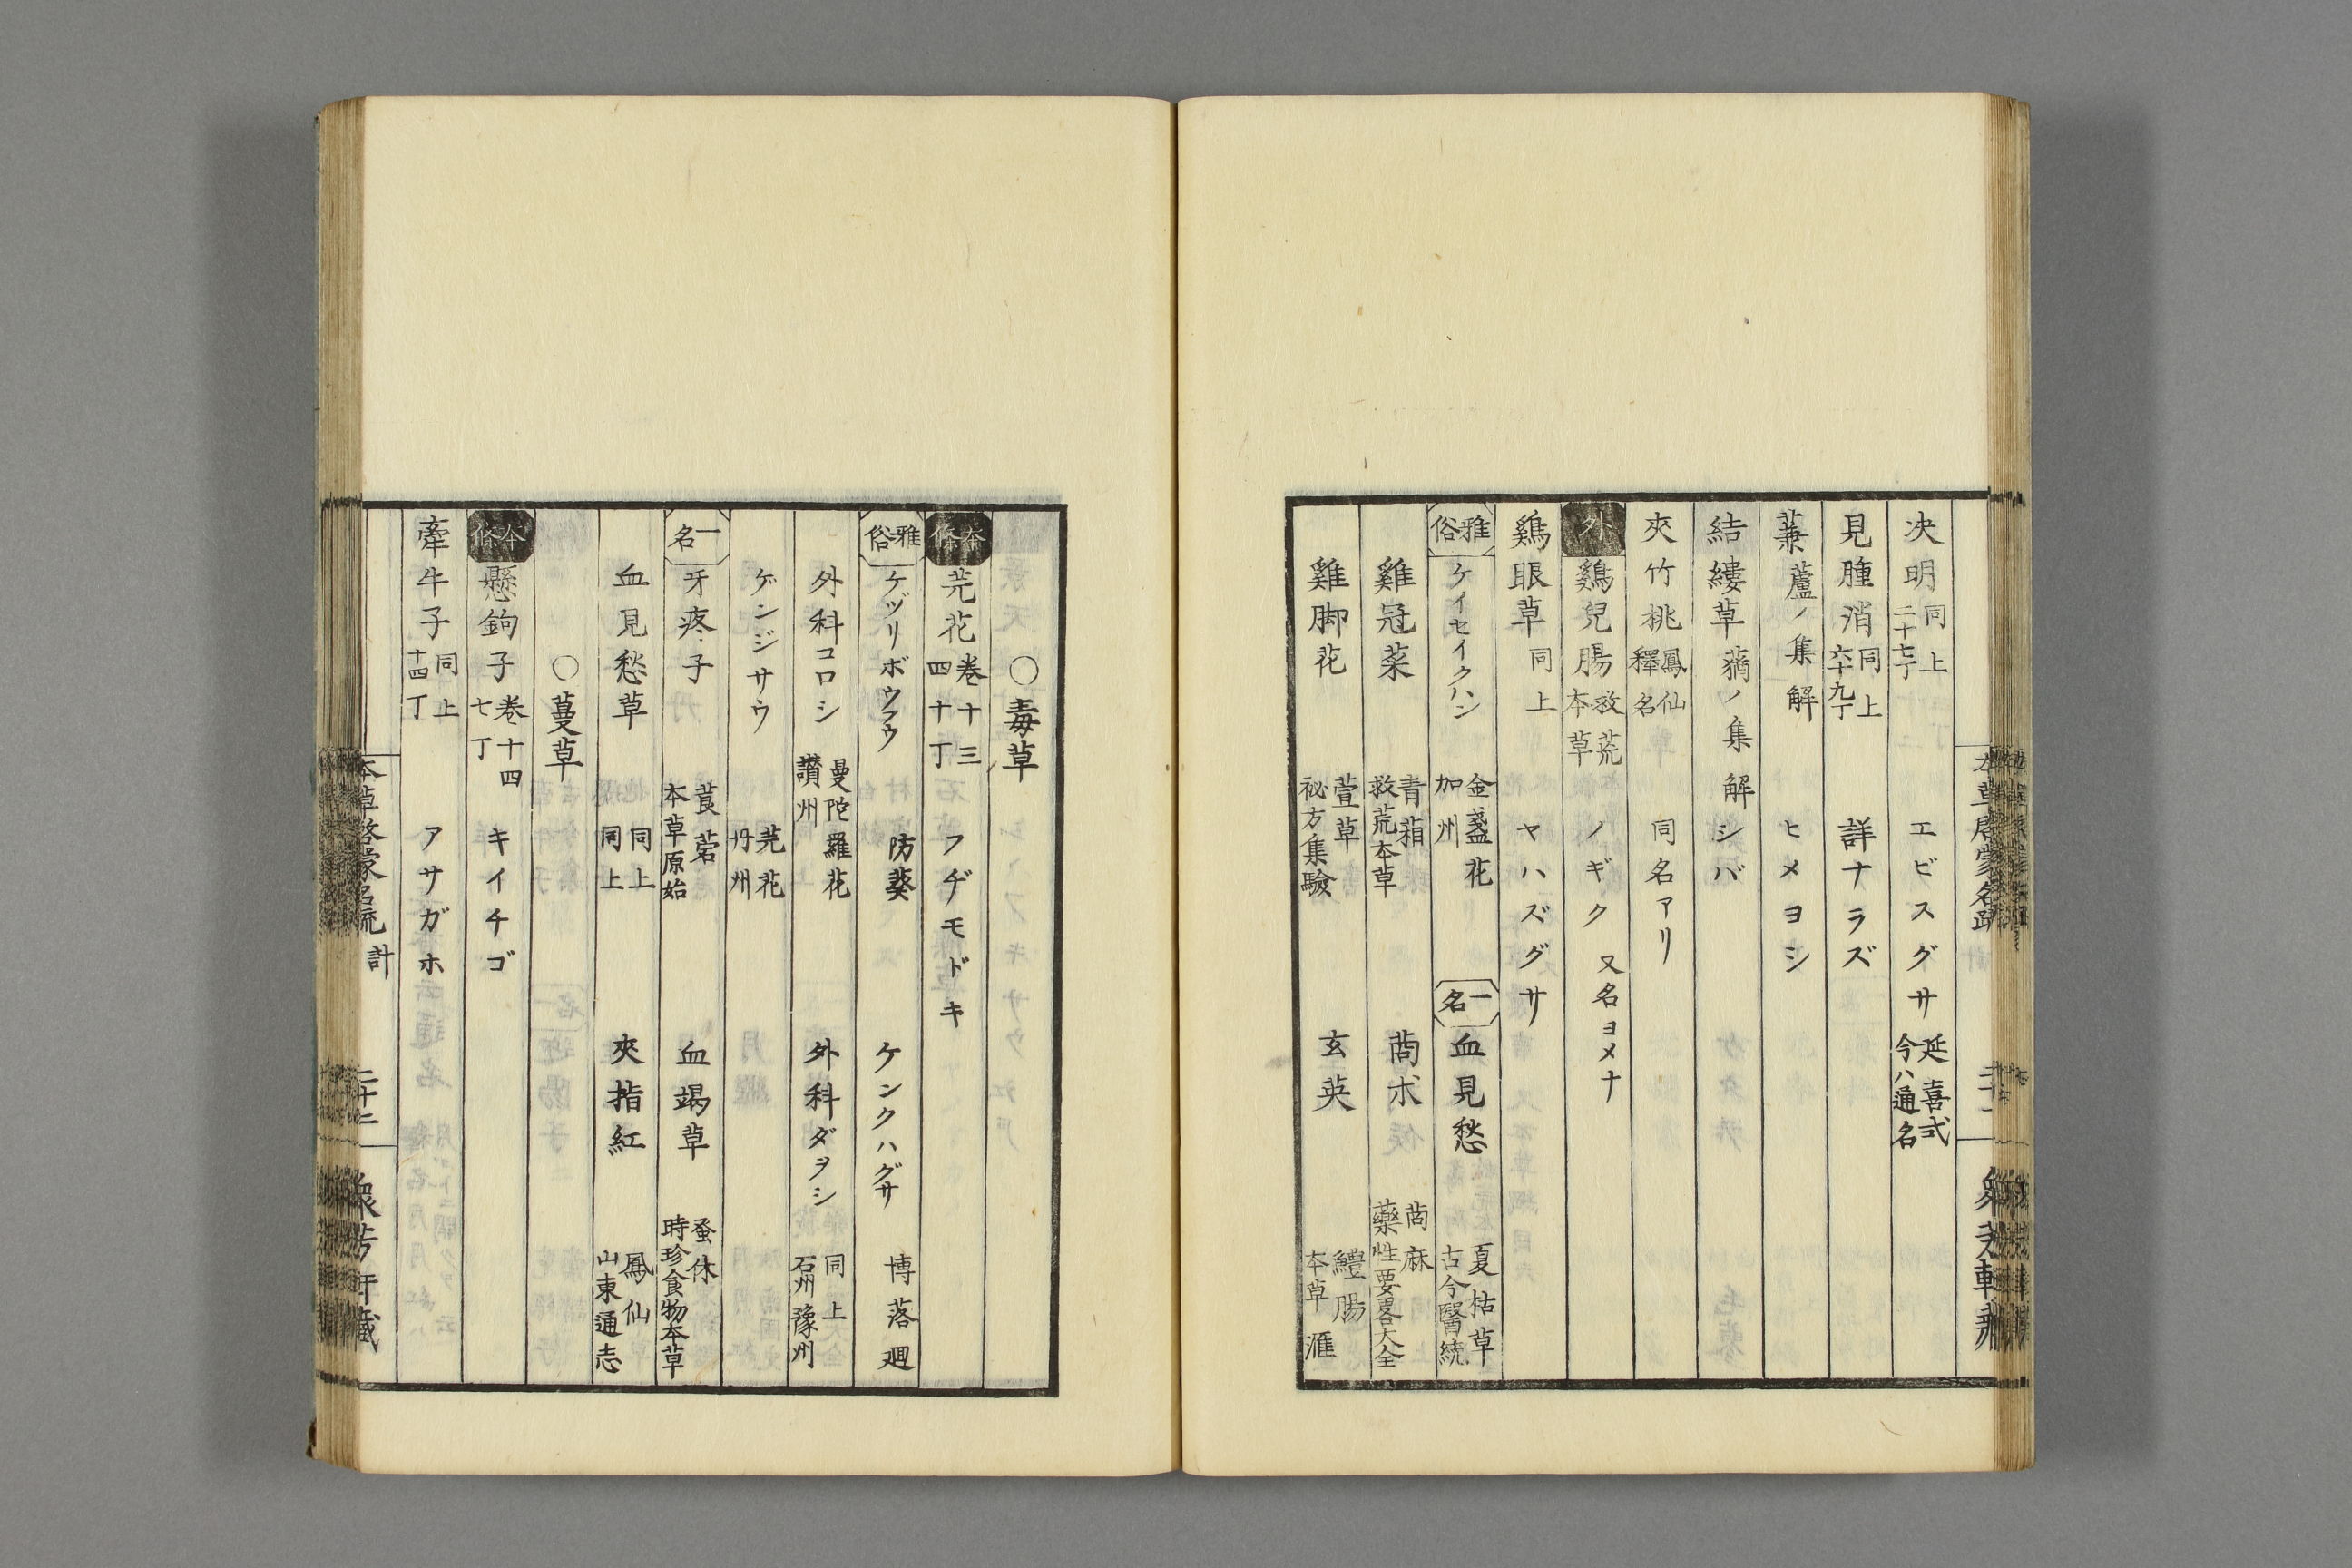 决明 同上 二十七丁 エビスグサ 延喜式 今ハ通名
見腫消 同上 六十九丁 詳ナラズ
蒹 蘆ノ集解 ヒメヨシ
結縷草 蕕ノ集解 シバ
夾竹桃 鳳仙 釋名 同名アリ
外 鷄兒腸 救荒本草 ノギク 又名ヨメナ
鷄眼草 同上 ヤハズグサ
雅俗 ケイセイクハン 金盞花 加州 一名 血見愁 夏枯草 古今醫統
雞冠菜 青葙 救荒本草 䔛朮 䔛麻 藥性要畧大全
雞脚花 萱草 祕方集驗 玄英 鱧腸 本草滙
〇毒草
本條 芫花 卷十三 四十丁 フヂモドキ
雅俗 ケヅリボウフウ 防葵 ケンクハグサ 博落迴
外科コロシ 曼陀羅花 讃州 外科ダヲシ 同上 石州 豫州
ゲンジサウ 芫花 丹州
一名 牙疼子 莨菪 本草原始 血竭草 蚤休 時珍食物本草
血見愁草 同上 同上 夾指紅 鳳仙 山東通志
〇蔓草
本條 懸鉤子 卷十四 七丁 キイチゴ
牽牛子 同上 十四丁 アサガホ
本草啓蒙名疏 計 二十二 衆芳軒藏